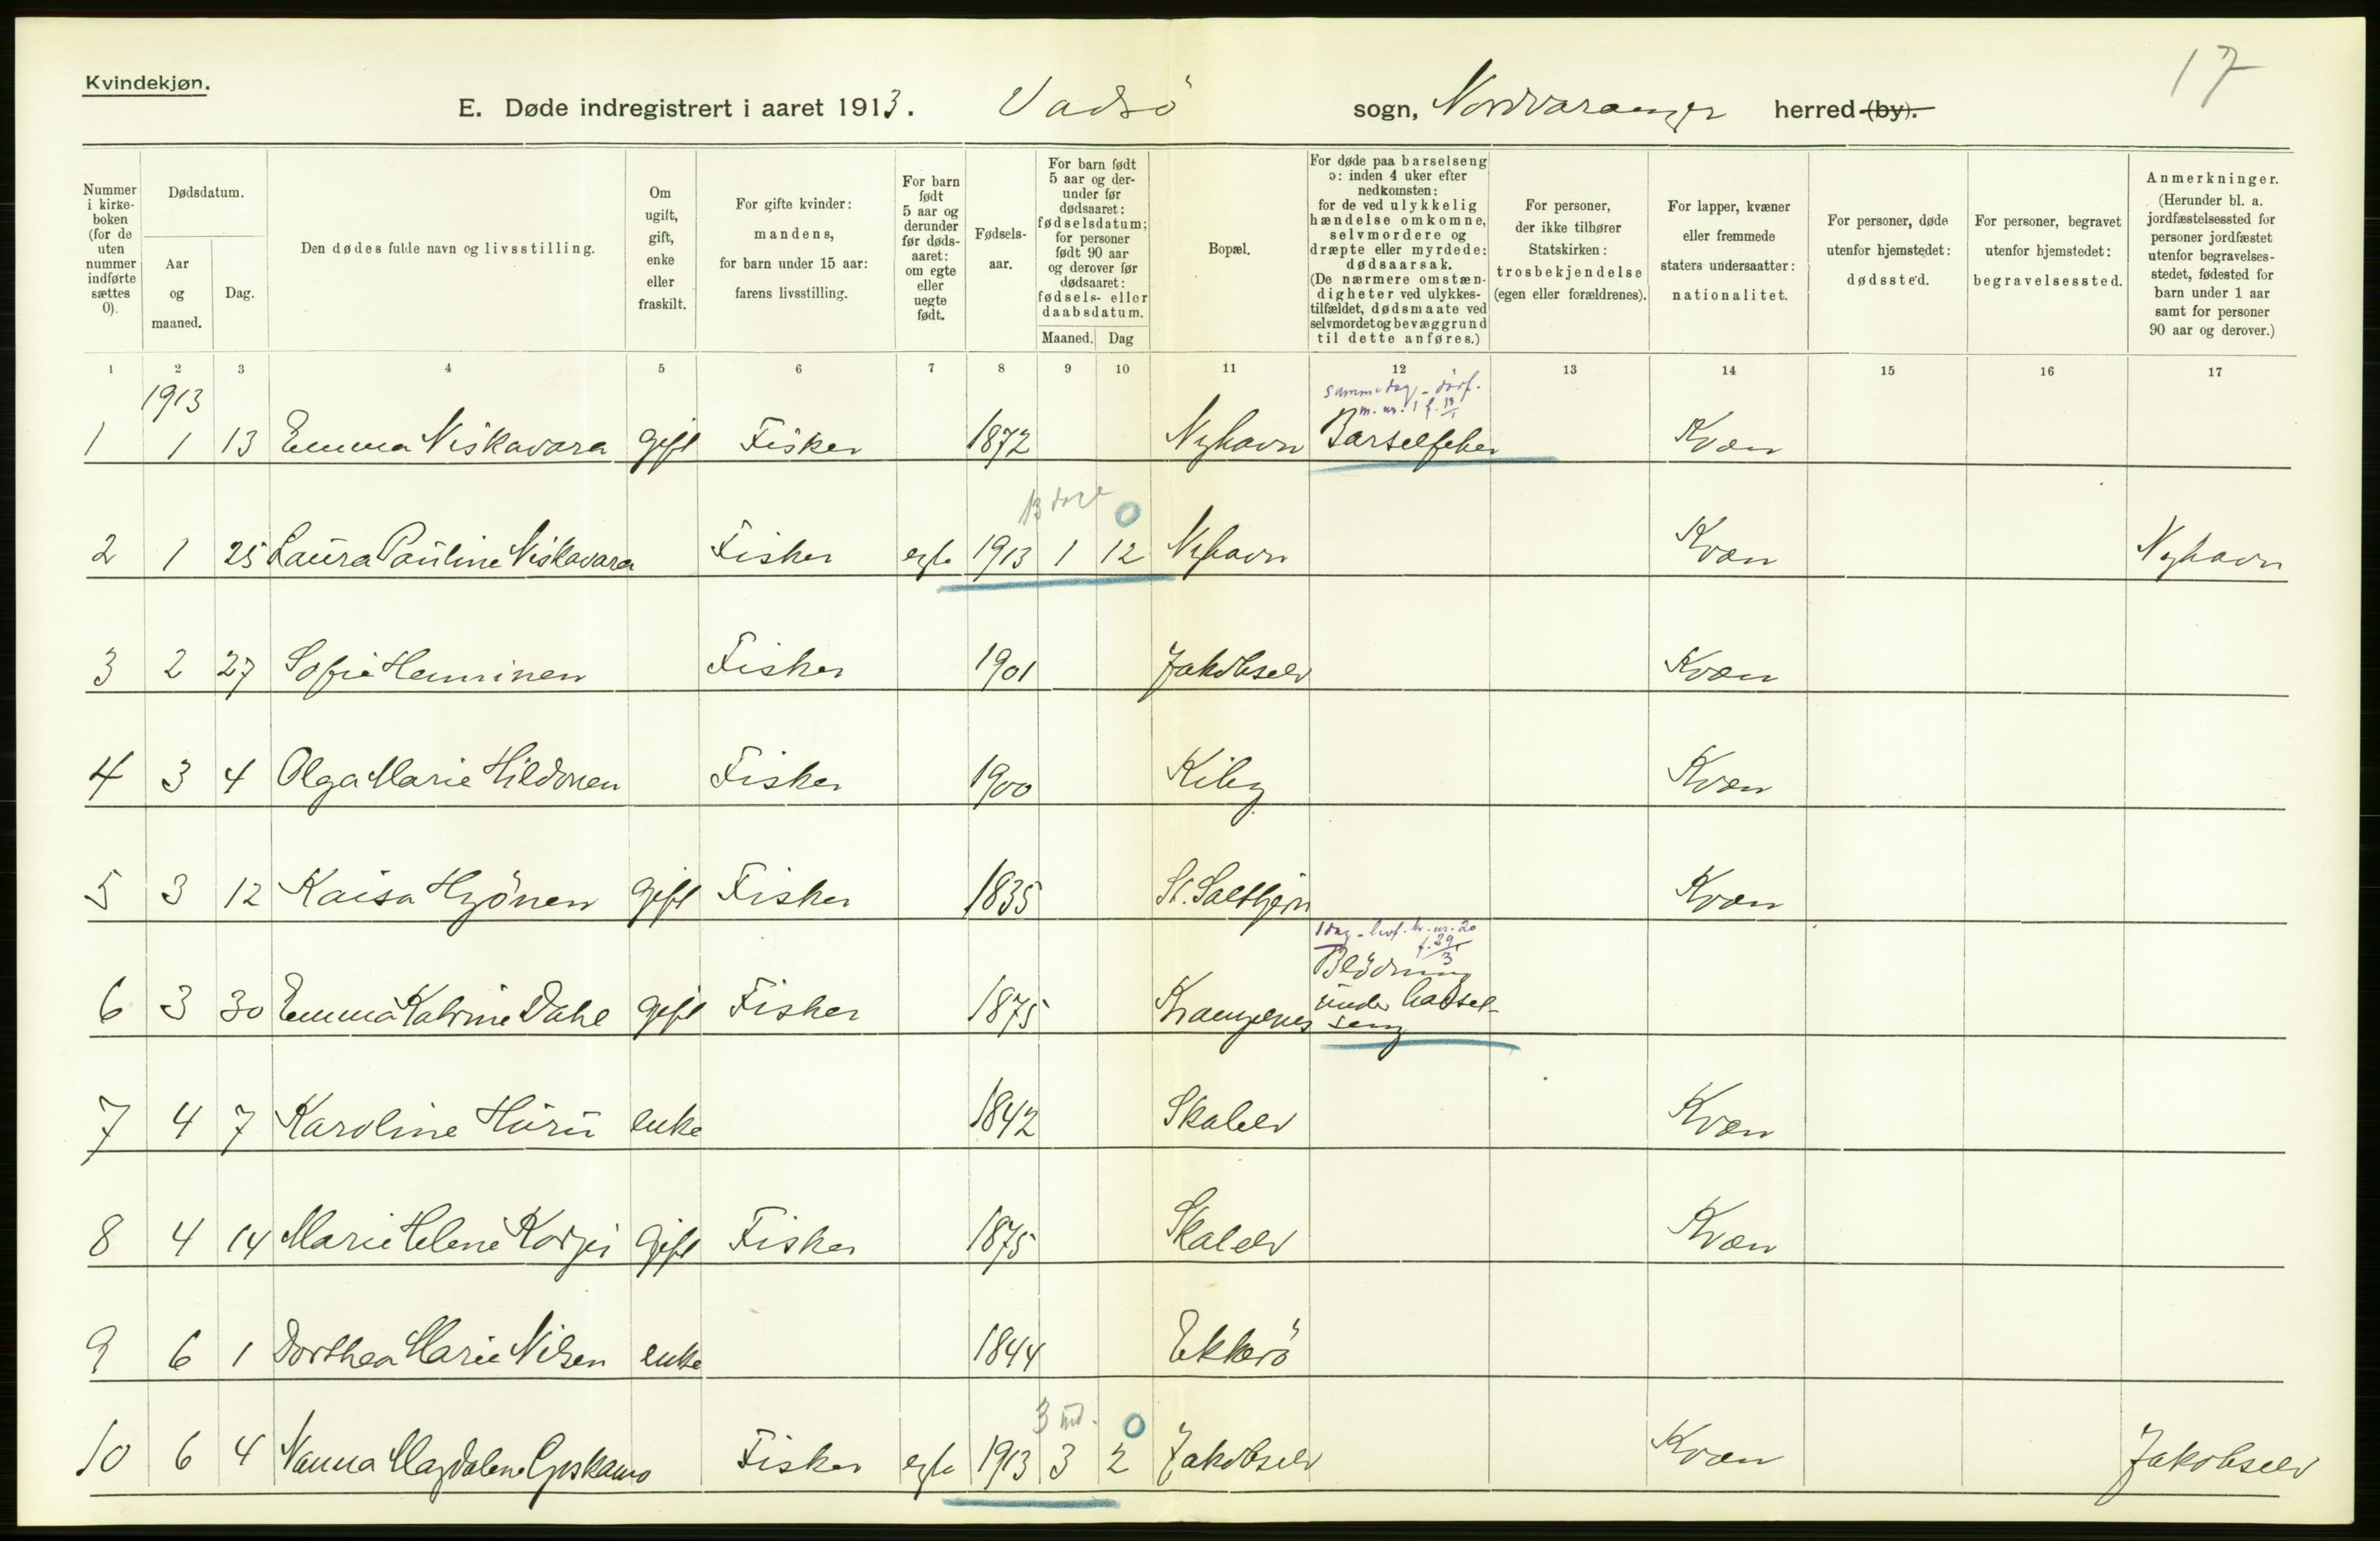 17
Kvindekjøn.
E. Døde indregistrert i aaret 1913. Vadsö sogn, Nordvaranger herred (by).
Nummer i kirke-boken (for de uten nummer indførte sættes 0).
Dødsdatum.
Aar og maaned.
Dag.
Den dødes fulde navn og livsstilling.
Om ugift, gift, enke eller fraskilt.
For gifte kvinder: mandens, for barn under 15 aar: farens livsstilling.
For barn født 5 aar og derunder før døds-aaret: om egte eller uegte født.
Fødsels-aar.
For barn født 5 aar og der-under før dødsaaret: fødselsdatum; for personer født 90 aar og derover før dødsaaret: fødsels- eller daabsdatum.
Maaned. Dag
Bopæl.
For døde paa barselseng ɔ: inden 4 uker efter nedkomsten: for de ved ulykkelig hændelse omkomne, selvmordere og dræpte eller myrdede: dødsaarsak. (De nærmere omstæn-digheter ved ulykkes-tilfældet, dødsmaate ved selvmordet og bevæggrund til dette anføres.)
For personer, der ikke tilhører Statskirken: trosbekjendelse (egen eller forældrenes).
For lapper, kvæner eller fremmede staters undersaatter: nationalitet.
For personer, døde utenfor hjemstedet: dødssted.
For personer, begravet utenfor hjemstedet: begravelsessted.
Anmerkninger. (Herunder bl. a. jordfæstelsessted for personer jordfæstet utenfor begravelses-stedet, fødested for barn under 1 aar samt for personer 90 aar og derover.)
1 2 3 4 5 6 7 8 9 10 11 12 13 14 15 16 17
1913
samme dag - dödf.
m. nr. 1 f. 13/1
1 1 13 Emma Niskavara gift Fisker 1872 Nyhavn Barselfeber Kvæn
0
2 1 25 Laura Pauline Niskavara Fisker egte 1913 1 12 Nyhavn Kvæn Nyhavn
3 2 27 Sofie Henninen Fisker 1901 Jakobselv Kvæn
4 3 4 Olga Marie Hildonen Fisker 1900 Kiby Kvæn
5 3 12 Kaisa Hyönen gift Fisker 1835 St. Salthjern Kvæn
1 dag - levf. kv. nr. 20
f. 29/3
6 3 30 Emma Katrine Dahl gift Fisker 1875 Krampenes Blödning under barsel-seng
7 4 7 Karoline Huru enke 1842 Skalelv Kvæn
8 4 14 Marie Helene Gift Fisker 1875 Skalelv Kvæn
9 6 1 Dorthea Marie Nilsen enke 1844 Ekkerö
3 md. 0
10 6 4 Nanna Magdalene Fisker egte 1913 3 2 Jakobselv Kvæn Jakobselv